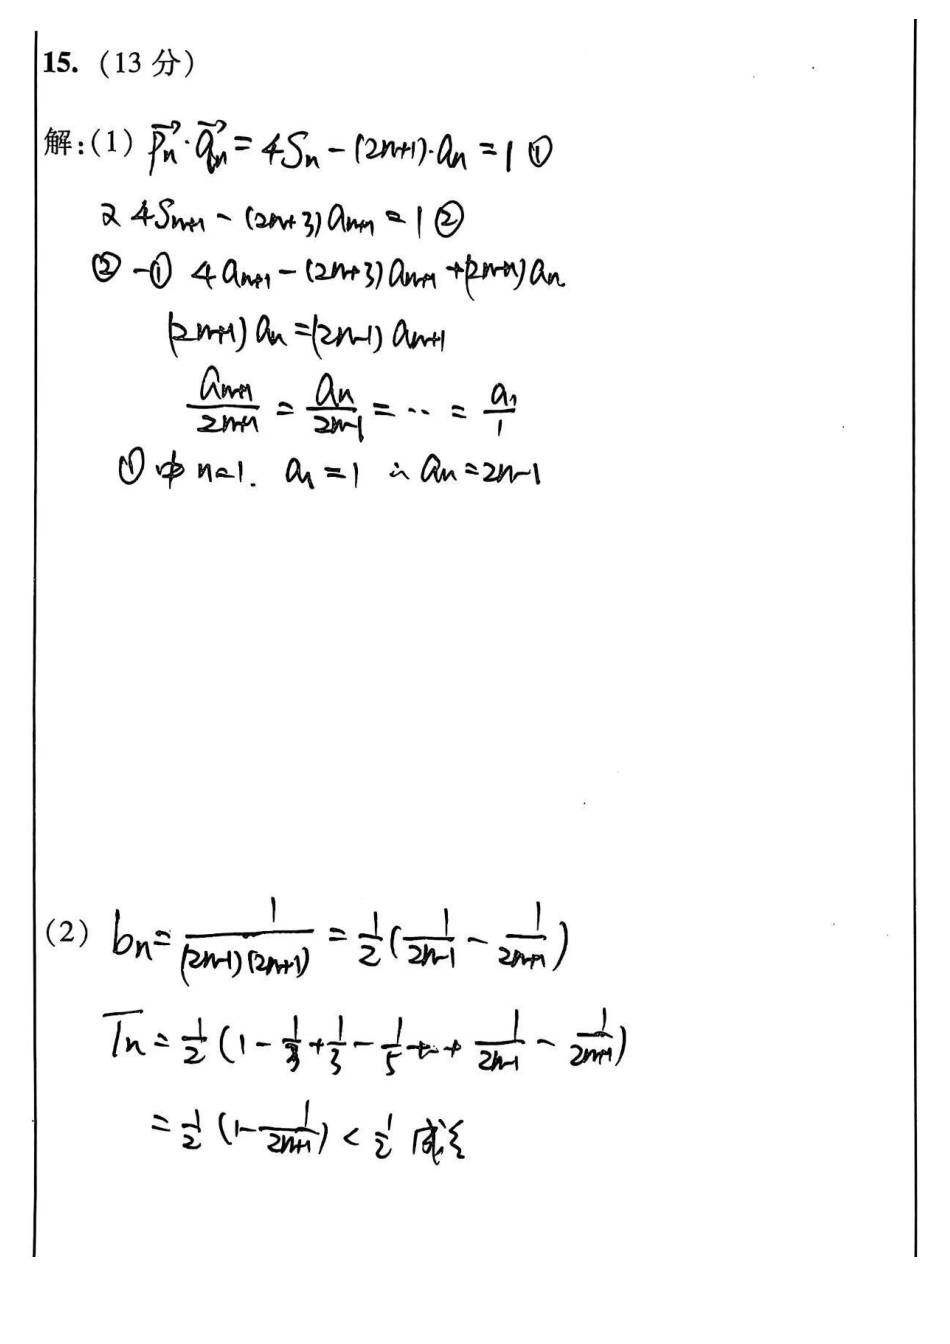 15. (13 分)
解:(1) $\vec{p_n}\cdot\vec{q_n}=4S_n-(2n+1)\cdot a_n=1$ ①
又 $4S_{n+1}-(2n+3)a_{n+1}=1$ ②
②-① $4a_{n+1}-(2n+3)a_{n+1}+(2n+1)a_n$
$(2n+1)a_n=(2n-1)a_{n+1}$
$\frac{a_{n+1}}{2n+1}=\frac{a_n}{2n-1}=\cdots=\frac{a_1}{1}$
①中 n=1. $a_1=1$ ∴ $a_n=2n-1$
(2) $b_n=\frac{1}{(2n-1)(2n+1)}=\frac{1}{2}(\frac{1}{2n-1}-\frac{1}{2n+1})$
$T_n=\frac{1}{2}(1-\frac{1}{3}+\frac{1}{3}-\frac{1}{5}+\cdots+\frac{1}{2n-1}-\frac{1}{2n+1})$
$=\frac{1}{2}(1-\frac{1}{2n+1})<\frac{1}{2}$ 成立